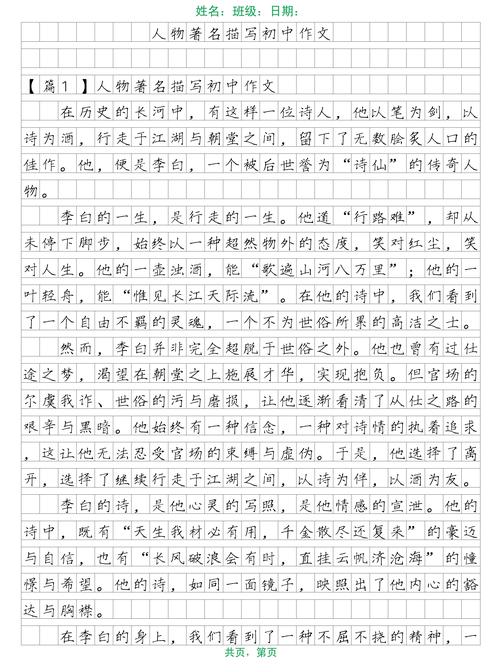 姓名：班级：日期：
人物著名描写初中作文
【篇1】人物著名描写初中作文
在历史的长河中，有这样一位诗人，他以笔为剑，以
诗为酒，行走于江湖与朝堂之间，留下了无数脍炙人口的
佳作。他，便是李白，一个被后世誉为“诗仙”的传奇人
物。
李白的一生，是行走的一生。他道“行路难”，却从
未停下脚步，始终以一种超然物外的态度，笑对红尘，笑
对人生。他的一壶浊酒，能“歌遍山河八万里”；他的一
叶轻舟，能“惟见长江天际流”。在他的诗中，我们看到
了一个自由不羁的灵魂，一个不为世俗所累的高洁之士。
然而，李白并非完全超脱于世俗之外。他也曾有过仕
途之梦，渴望在朝堂之上施展才华，实现抱负。但官场的
尔虞我诈、世俗的污与磨损，让他逐渐看清了从仕之路的
艰辛与黑暗。他始终有一种信念，一种对诗情的执着追求
，这让他无法忍受官场的束缚与虚伪。于是，他选择了离
开，选择了继续行走于江湖之间，以诗为伴，以酒为友。
李白的诗，是他心灵的写照，是他情感的宣泄。他的
诗中，既有“天生我材必有用，千金散尽还复来”的豪迈
与自信，也有“长风破浪会有时，直挂云帆济沧海”的憧
憬与希望。他的诗，如同一面镜子，映照出了他内心的豁
达与胸襟。
在李白的身上，我们看到了一种不屈不挠的精神，一
共页，第页